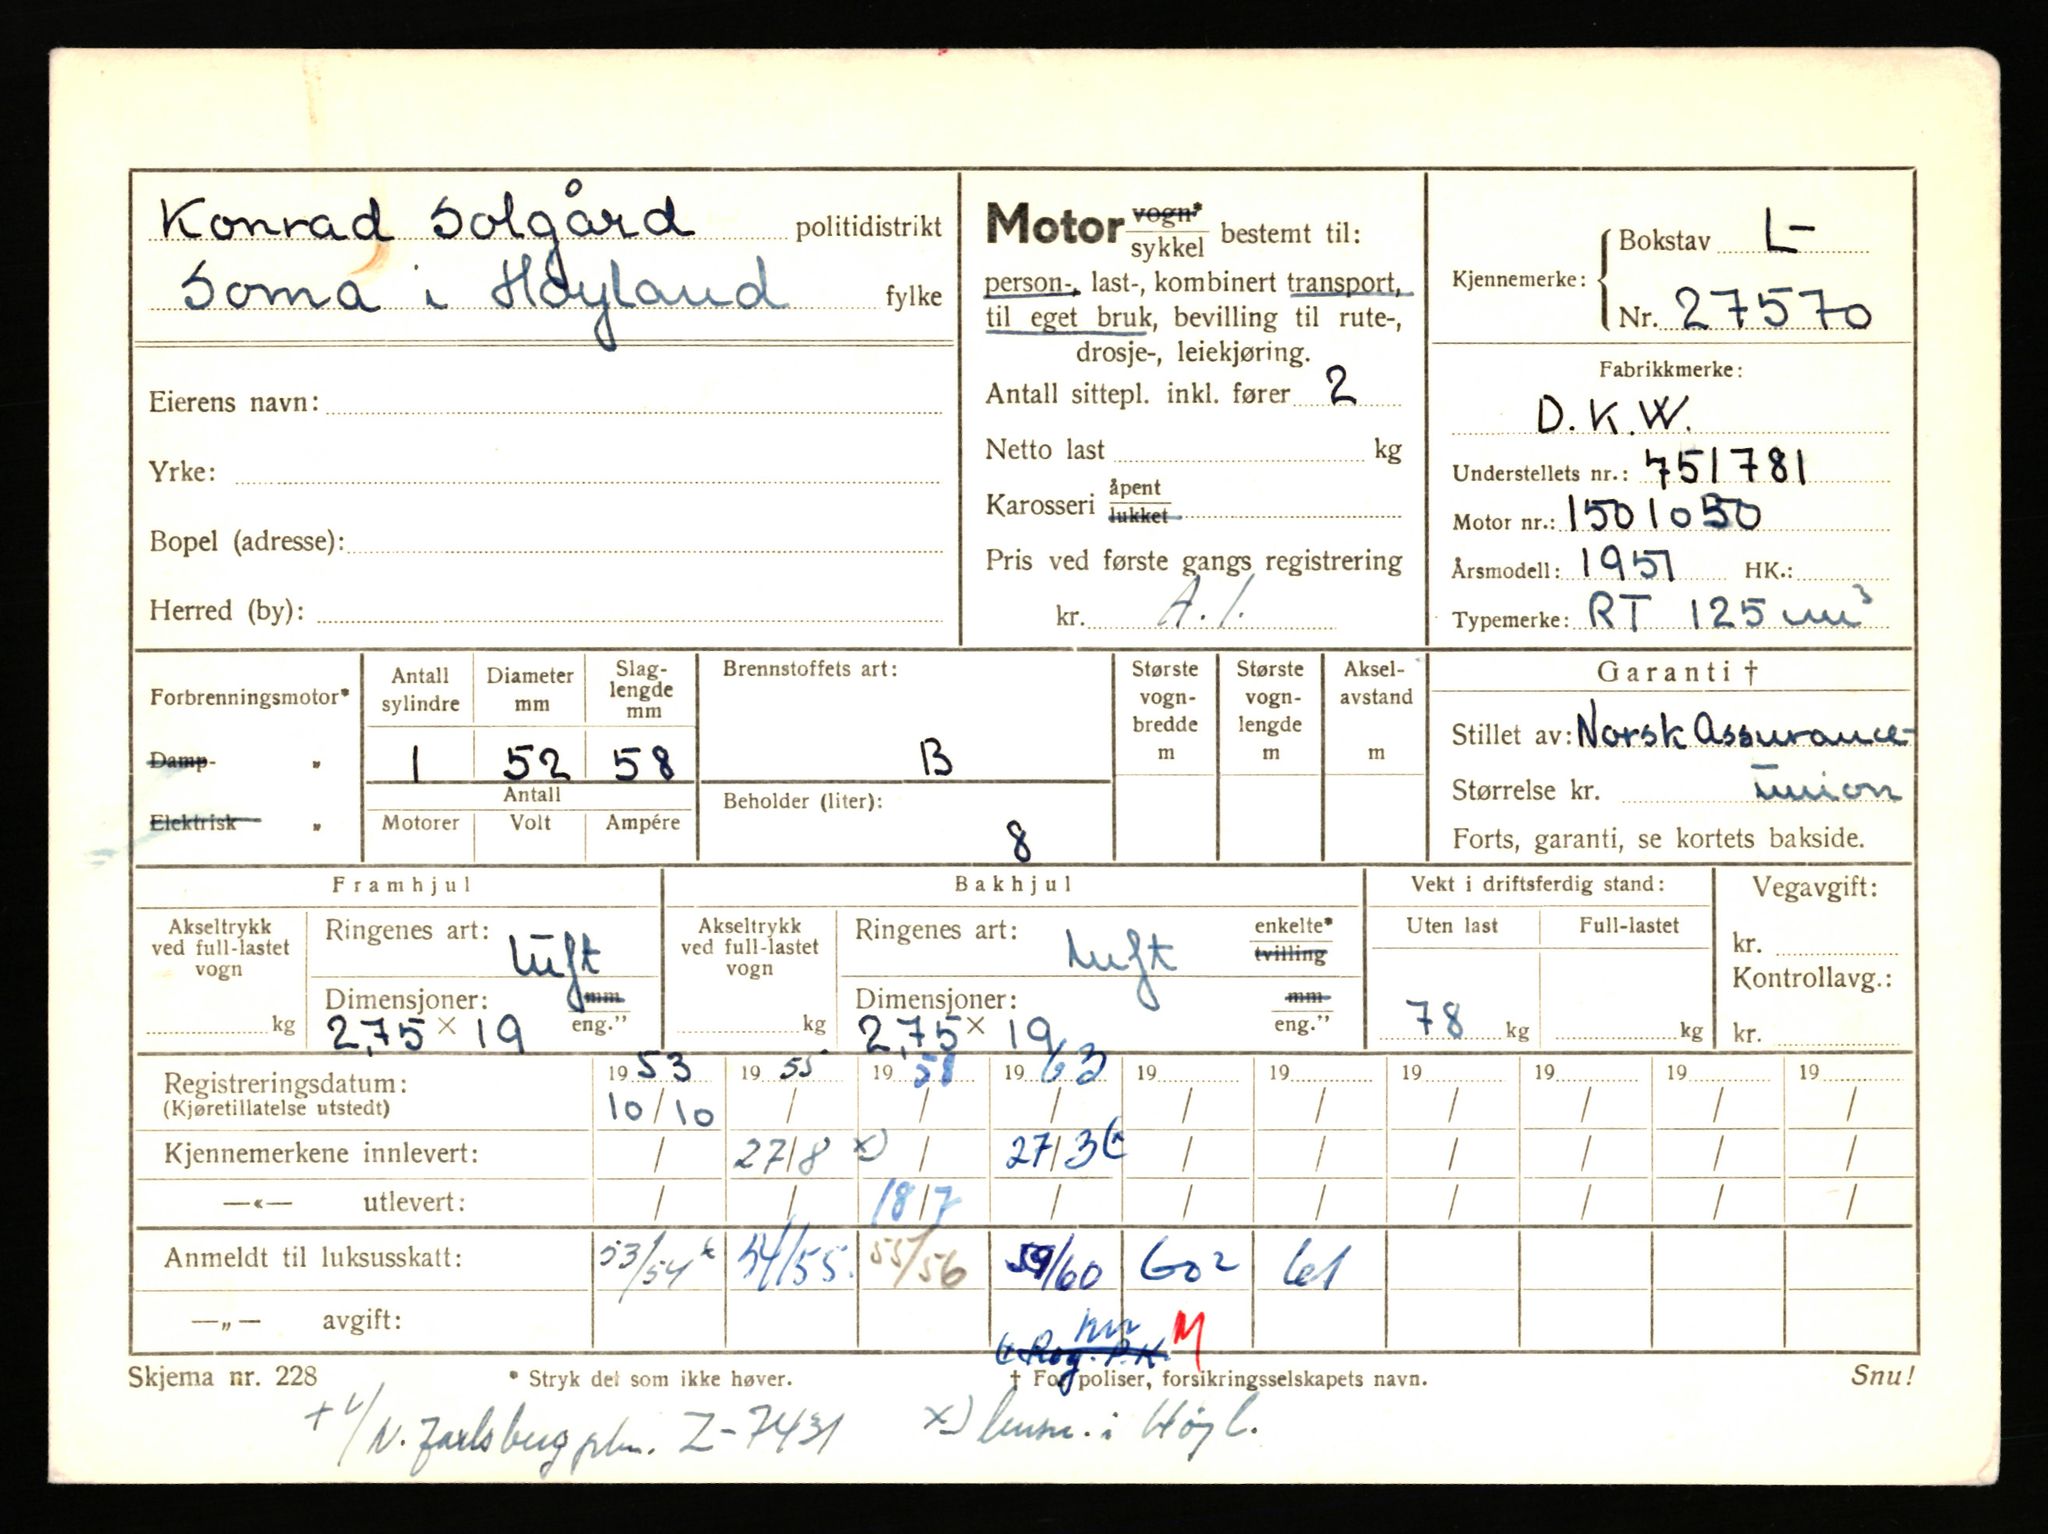 Konrad Solgård politidistrikt
Soma i Høyland fylke
Eierens navn:
Yrke:
Bopel (adresse):
Herred (by):
Motor vogn* sykkel bestemt til:
person-, last-, kombinert transport,
til eget bruk, bevilling til rute-,
drosje-, leiekjøring.
Antall sittepl. inkl. fører 2
Netto last kg
Karosseri åpent lukket
Pris ved første gangs registrering
kr. A. I.
Kjennemerke: Bokstav L-
Nr. 27570
Fabrikkmerke:
D.K.W.
Understellets nr.: 751781
Motor nr.: 1501050
Årsmodell: 1951 HK.:
Typemerke: RT 125 m³
Forbrenningsmotor*
Damp- „
Elektrisk „
Antall sylindre
Diameter mm
Slag-lengde mm
1 52 58
Antall
Motorer Volt Ampére
Brennstoffets art:
B
Beholder (liter):
8
Største vogn-bredde m
Største vogn-lengde m
Aksel-avstand m
Garanti †
Stillet av: Norsk Assurance-
Størrelse kr. Union
Forts, garanti, se kortets bakside.
Framhjul
Akseltrykk ved full-lastet vogn
kg
Ringenes art: Luft
Dimensjoner: mm eng."
2,75 × 19
Bakhjul
Akseltrykk ved full-lastet vogn
kg
Ringenes art: Luft enkelte* tvilling
Dimensjoner: mm eng."
2,75 × 19
Vekt i driftsferdig stand:
Uten last Full-lastet
78 kg kg
Vegavgift:
kr.
Kontrollavg.:
kr.
Registreringsdatum: 1953 1955 1958 1963 19 19 19 19 19 19
(Kjøretillatelse utstedt) 10/10 / / / / / / / / /
Kjennemerkene innlevert: / 27/8 x) / 27/3 / / / / / /
—«— utlevert: / / 18/7 / / / / / / /
Anmeldt til luksusskatt: 53/54 54/55. 55/56 59/60 60² 61
—„— avgift:
Rog. P.K. M
Skjema nr. 228 * Stryk det som ikke høver. † For poliser, forsikringsselskapets navn. Snu!
N. Jarlsberg Z-7431 x) i Høyl.